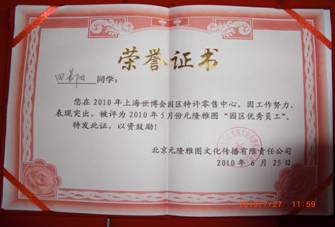 荣誉证书
同学:
您在2010年上海世博会园区特许零售中心,因工作努力、
表现突出,被评为2010年5月份元隆雅图“园区优秀员工”。
特发此证,以资鼓励!
北京元隆雅图文化传播有限责任公司
2010年6月25日
2010/7/27 11:59